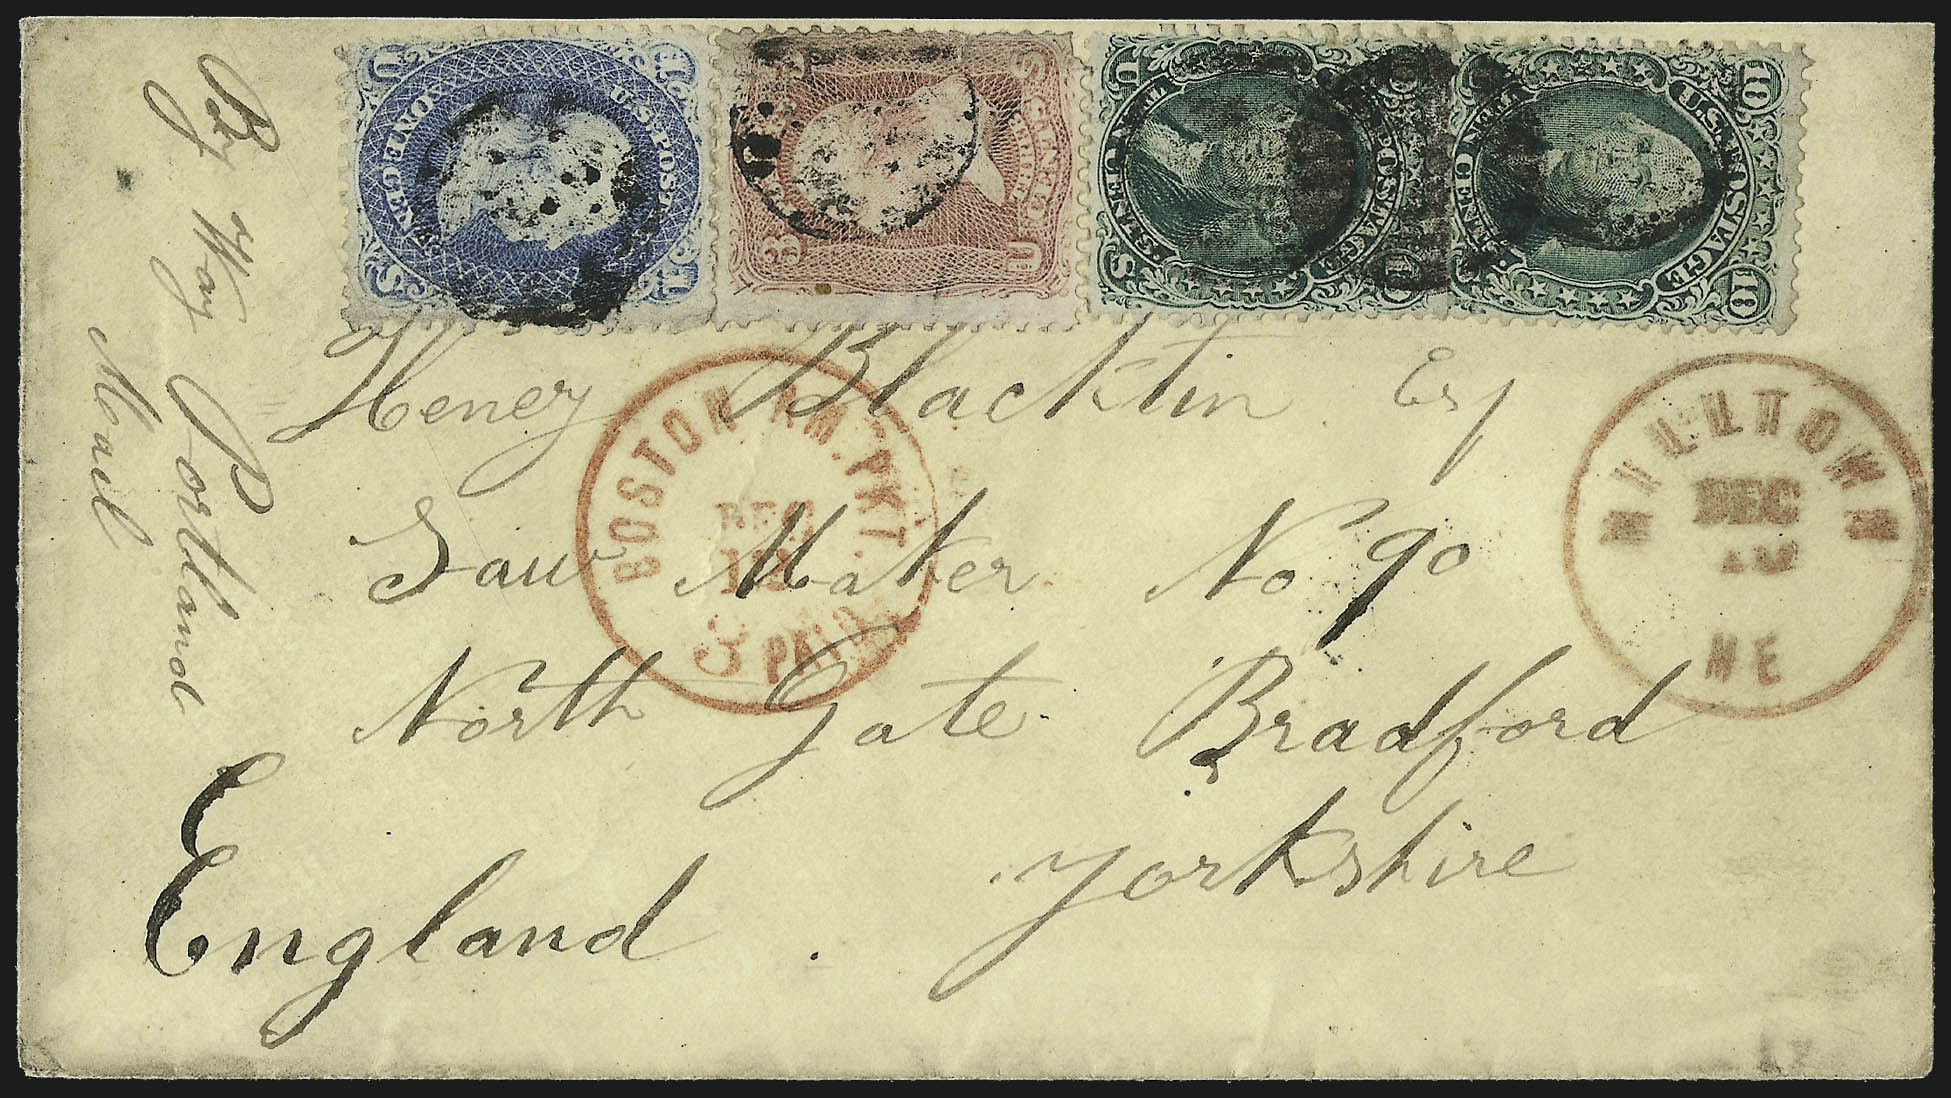 By Way Portland
Mail
U.S. POST
ONE CENT
U S
3 3
U S
THREE
CENTS
U.S. POSTAGE
TEN CENTS
U S
10 10
U.S. POSTAGE
TEN CENTS
Henery Blacktin Esq
Saw Maker No 90
North Gate Bradford
Yorkshire
England
BOSTON AM. PKT.
DEC
3 PAID
MILLTOWN
DEC
ME